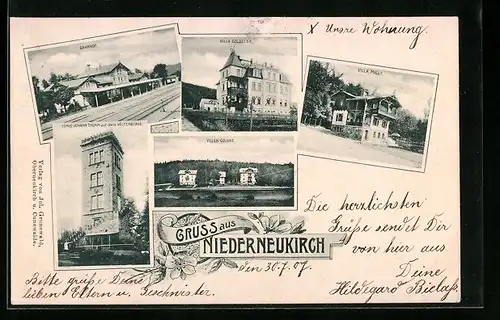 x Unsre Wohnung.
BAHNHOF
VILLA
VILLA
KÖNIG JOHANN THURM auf dem VALTENBERGE
VILLEN COLONIE
Verlag von Jul. Grunewald,
Oberneukirch u. Cunewalde.
GRUSS aus
NIEDERNEUKIRCH
den 30.7.07
Die herrlichsten
Grüße sendet Dir
von hier aus
Deine
Hildegard
Bitte grüße Deine
lieben Eltern u. Geschwister.